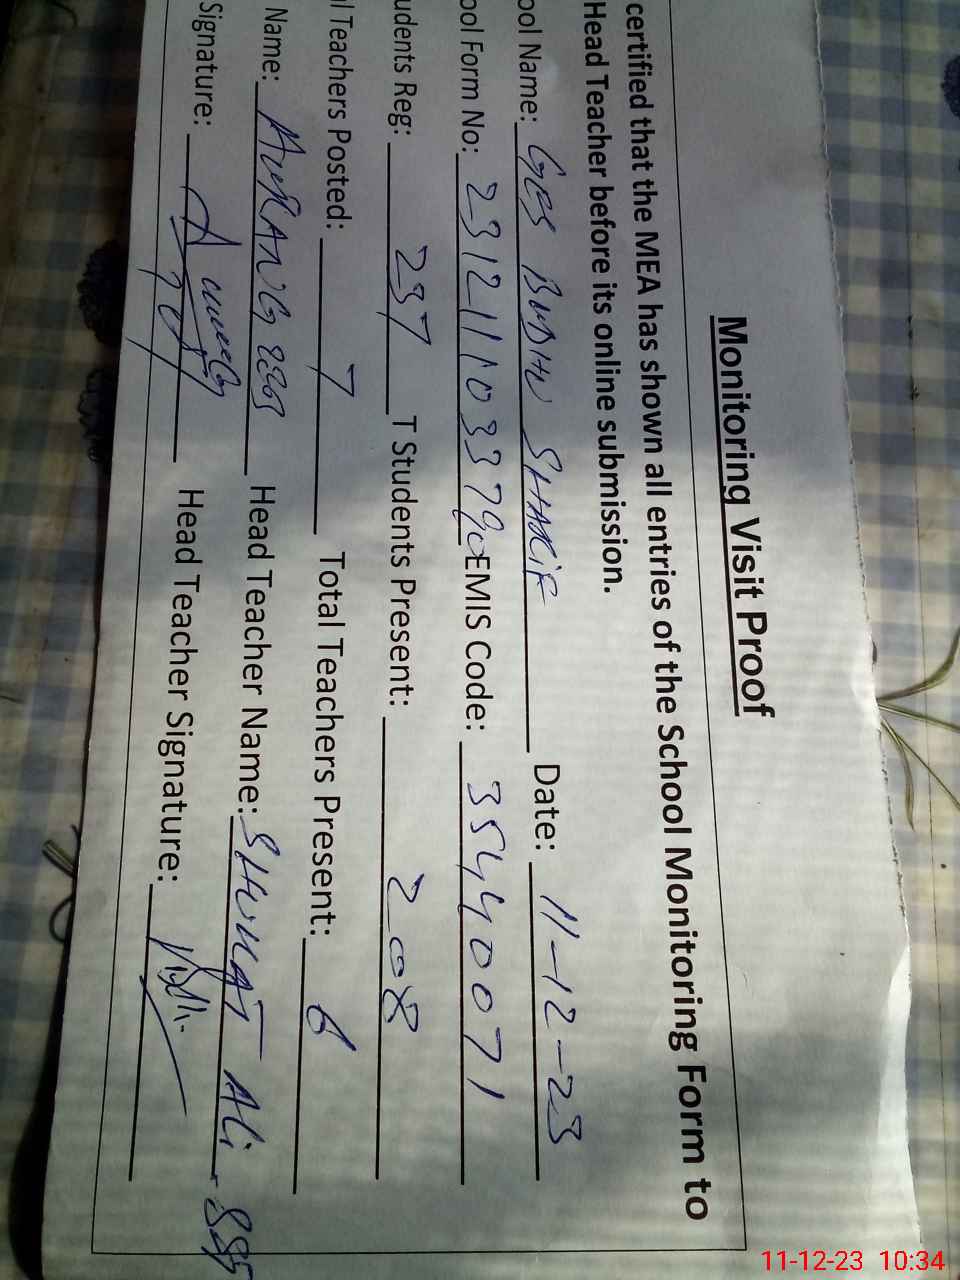 Monitoring Visit Proof
certified that the MEA has shown all entries of the School Monitoring Form to
Head Teacher before its online submission.
ool Name: GBS BUDHU SHARIF Date: 11-12-23
ool Form No: 23121103379 EMIS Code: 35440071
udents Reg: 237 T Students Present: 208
l Teachers Posted: 7 Total Teachers Present: 6
Name: AURANGZEB Head Teacher Name: SHUKAT Ali
Signature: Head Teacher Signature:
11-12-23 10:34